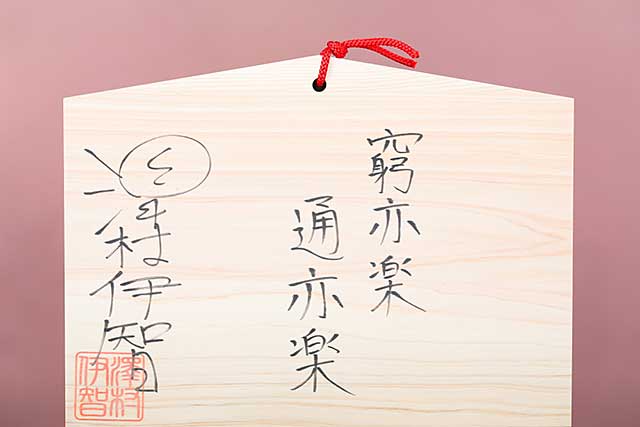 窮亦楽
通亦楽
澤村伊智
澤村
伊智